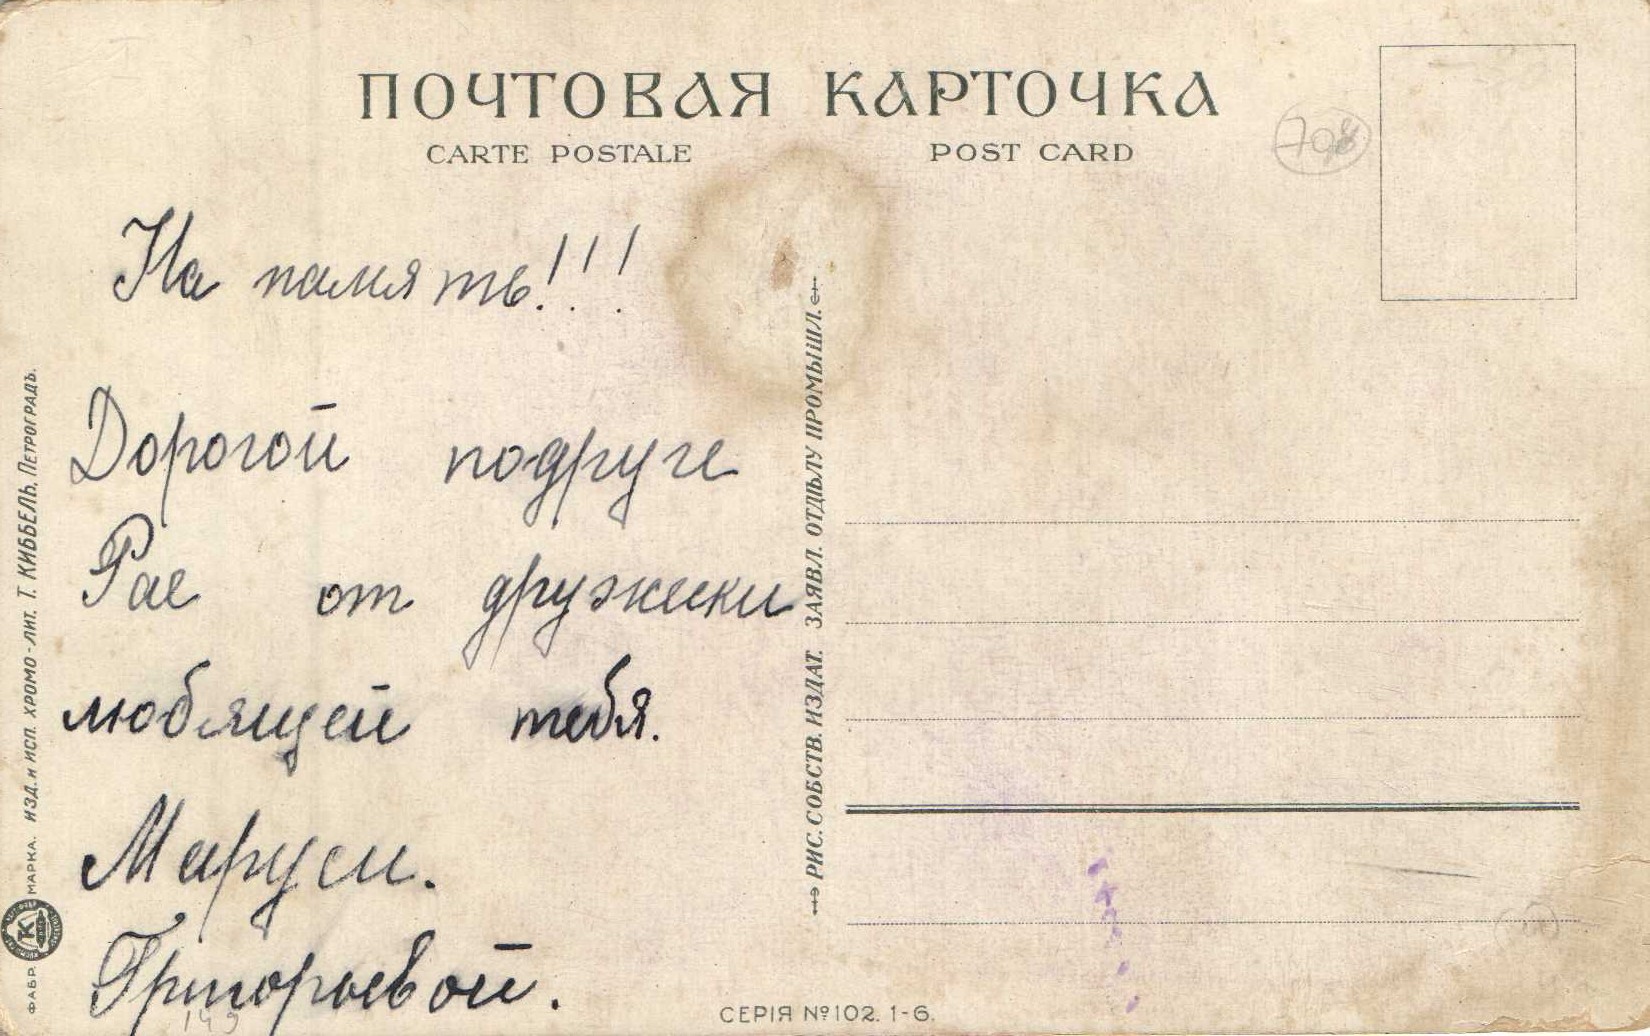 ПОЧТОВАЯ КАРТОЧКА
CARTE POSTALE POST CARD
708
На память!!!
Дорогой подруге
Рае от дружики
любящей тебя.
Маруси.
Григорьевой.
149
ФАБР. МАРКА. ИЗД. и ИСП. ХРОМО-ЛИТ. Т. КИББЕЛЬ, ПЕТРОГРАДЪ.
К
РИС. СОБСТВ. ИЗДАТ. ЗАЯВЛ. ОТДѢЛУ ПРОМЫШЛ.
СЕРІЯ №102. 1-6.